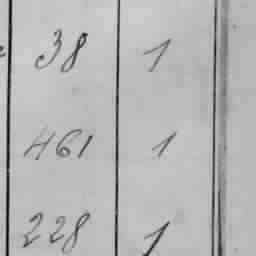 38 1
461 1
228 1